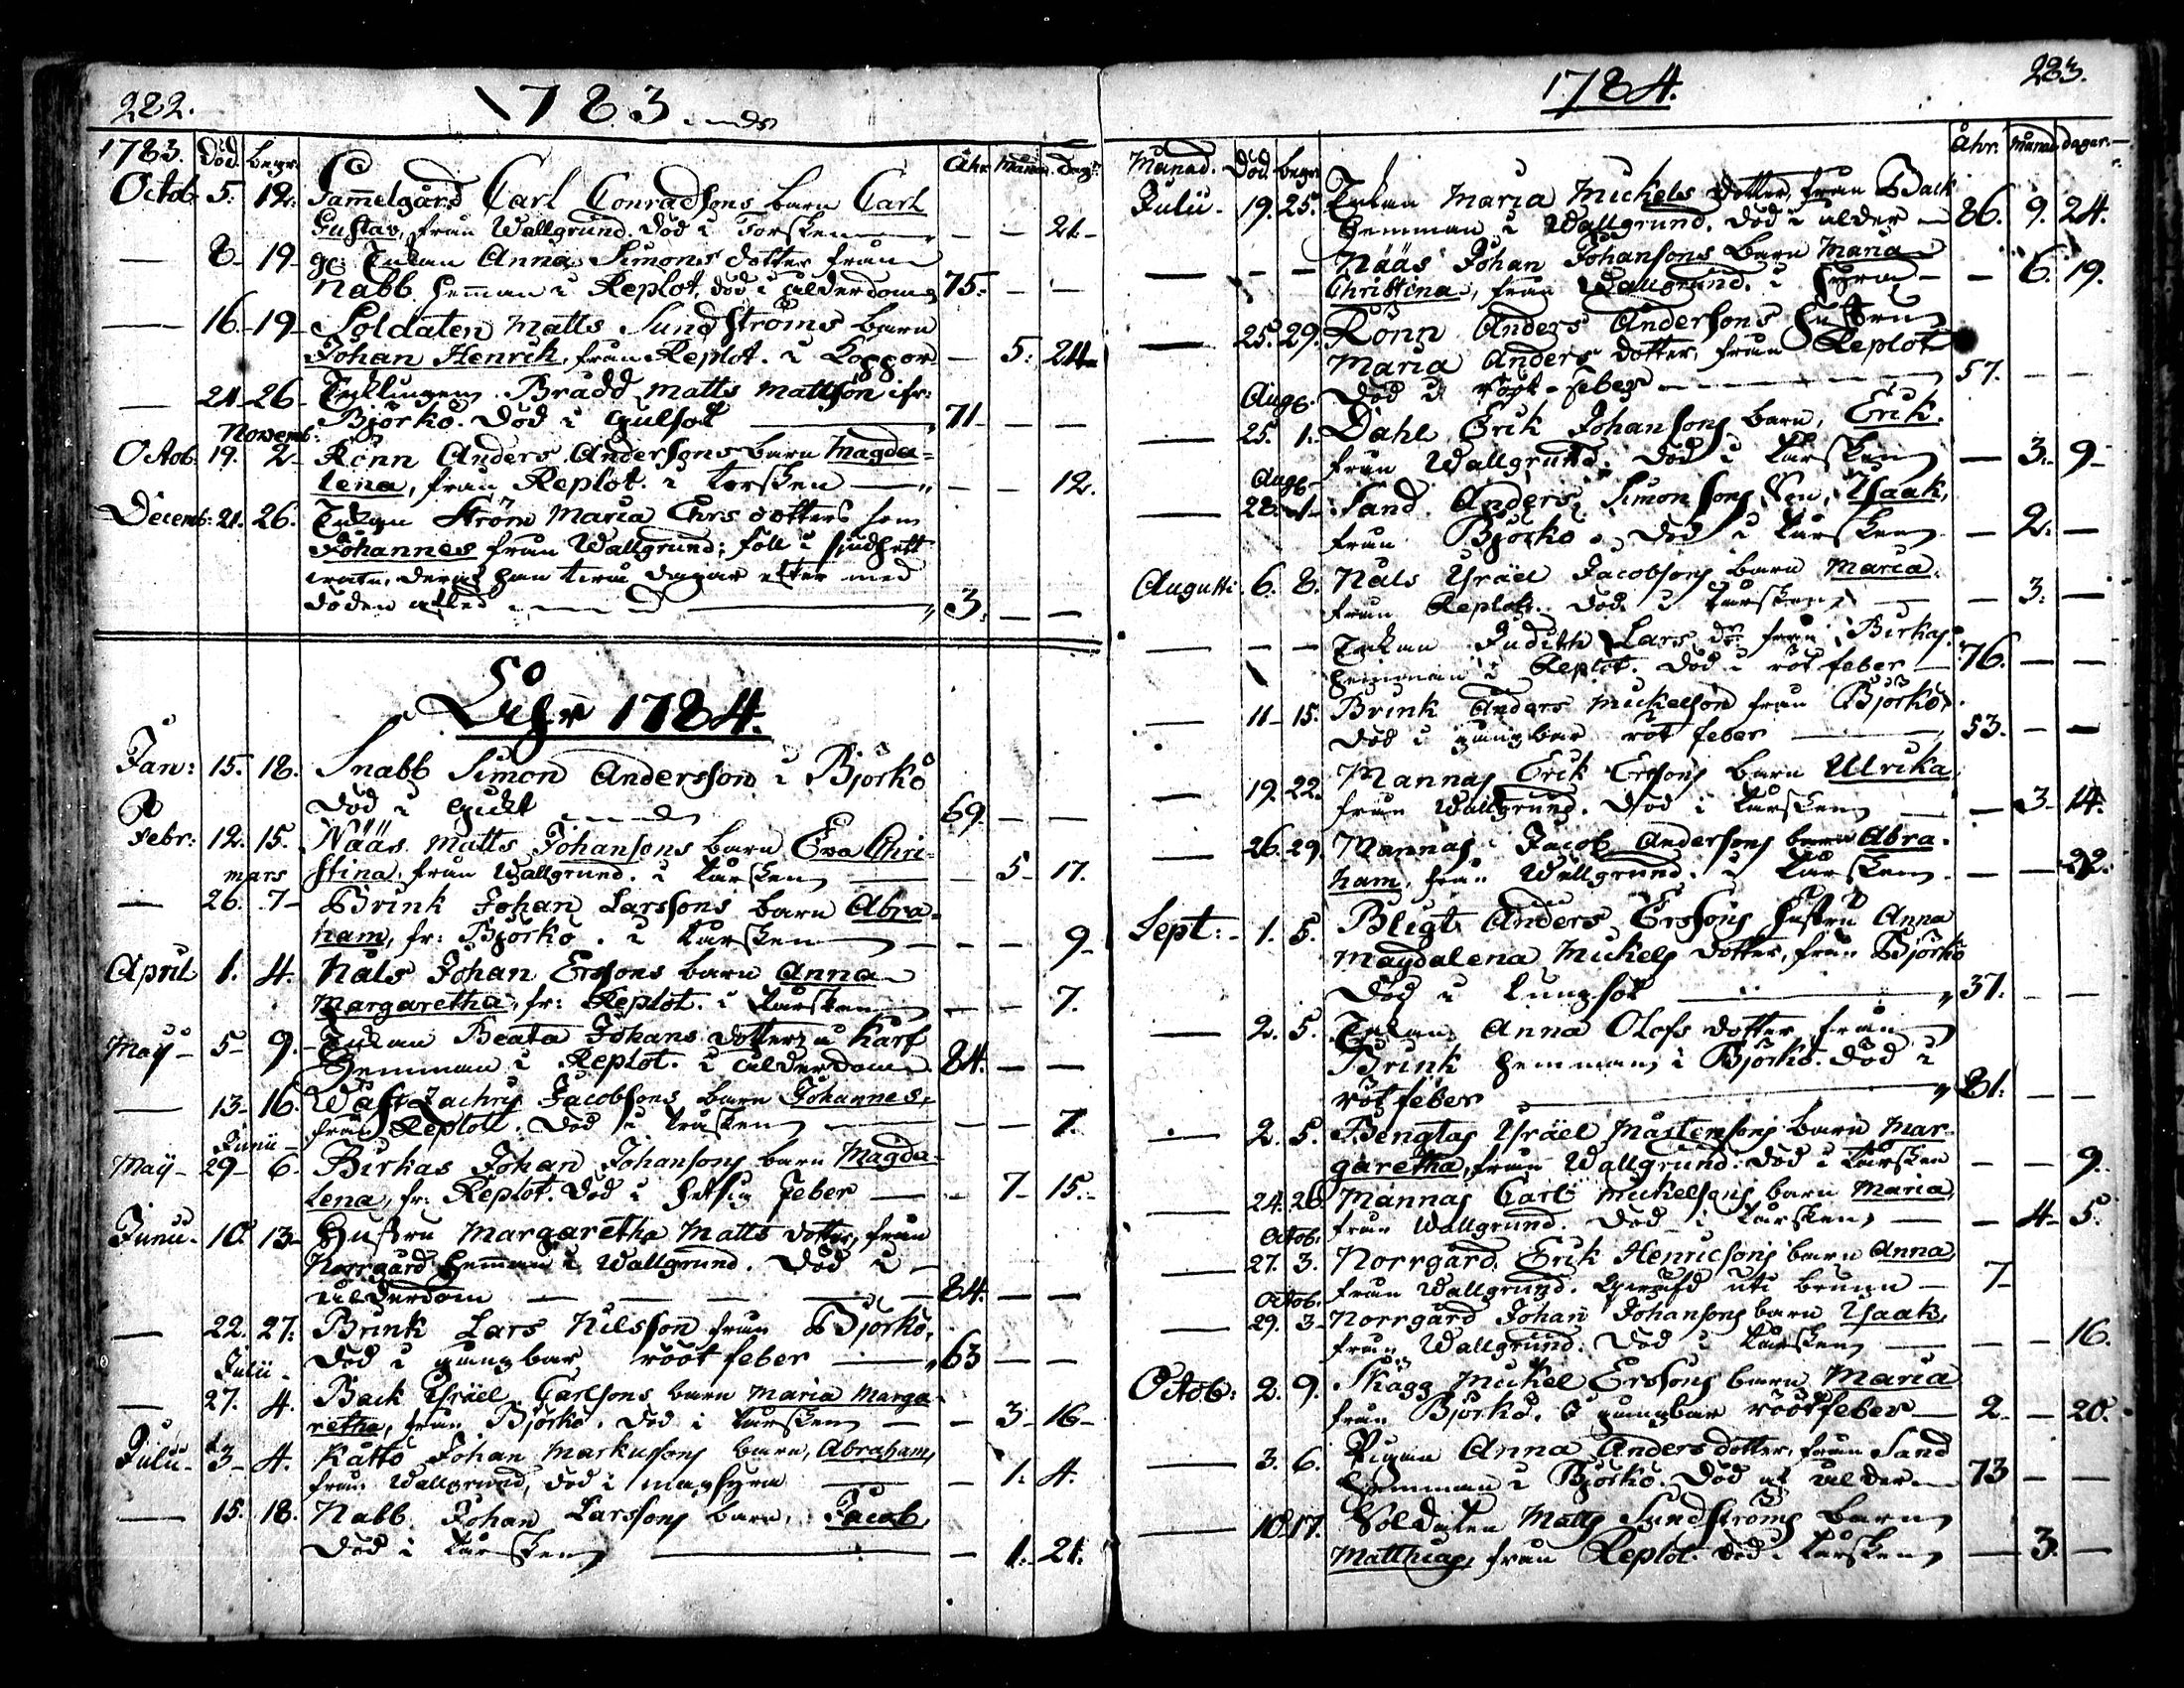 282.
1783.
1783. Död. begr: Åhr. Månad. Dag:
Octob. 5. 12. Gamelgård Carl Conradsons barn Carl
Gustav, från Wallgrund. död i Torsken — — 21.
— 8. 19. Enkan Anna Simons dotter från
Nabb heman i Replot, död i ålderdom 75. — —
— 16. 19. Soldaten Matts Sundströms barn
Johan Henrik, från Replot. i Koppor — 5. 24.
— 21. 26. Enklingen Brädd Matts Mattson ifr:
Björkö. död i Gulsot 71. — —
Novemb:
Octob. 19. 2. Rönn Anders Andersons barn Magda-
lena, från Replot. i torsken — — 12.
Decemb: 21. 26. Enkan Ström Maria Ehrs dotters son
Johannes från Wallgrund; föll i
deraf han två dagar efter med
döden afled 3. — —
Åhr 1784.
Jan: 15. 18. Snabb Simon Andersson i Björkö
död i Gickt 69. — —
Febr: 12. 15. Nääs Matts Johansons barn Eva Chri-
mars stina, från Wallgrund. i Tårsken — 5. 17.
— 26. 7. Brink Johan Larssons barn Abra-
ham, fr: Björkö. i Tårsken — — 9.
April 1. 4. Nåls Johan Ersons barn Anna
Margaretha, fr: Replot. i Tårsken — — 7.
May 5. 9. Enkan Beata Johans dotter å Karf
Hemman i Replot. i ålderdom. 84. — —
— 13. 16. Wäst Zachris Jacobsons barn Johannes,
från Replott. död i Tråsken — — 7.
Junii
May 29. 6. Birkas Johan Johansons barn Magda-
lena, fr: Replot. död i hetsig feber — 7. 15.
Junii. 10. 13. Hustru Margaretha Matts dotter, från
Norrgård Heman i Wallgrund. Död i
ålderdom 84. — —
— 22. 27. Brink Lars Nilsson från Björkö,
död i gångbar rööt feber 63 — —
Julii.
— 27. 4. Back Israel Carlsons barn Maria Marga-
retha, från Björkö. död i Tårsken — 3. 16.
Julii. 3. 4. Kåttö Johan Markussons barn, Abraham,
från Wallgrund, död i magsyra — 1. 4.
— 15. 18. Nabb Johan Larssons barn, Jacob,
död i Tårsken — 1. 21.
1784. 283.
Månad. Död. begr. Åhr. månad. dagar.
Julii. 19. 25. Enkan Maria Mickels dotter, från Back
Hemman i Wallgrund. död i ålder 86. 9. 24.
— — — Nääs Johan Johansons barn Maria
Christina, från Wallgrund. i — 6. 19.
— 25. 29. Rönn Anders Andersons Hustru
Maria Anders dotter, från Replot
död i rööt-feber 57. — —
Aug.
— 25. 1. Dahl Erik Johansons barn, Erik.
från Wallgrund. död i Tårsken — 3. 9.
Aug.
— 28. 1. Sand Anders Simonsons son, Isaak,
från Björkö. död i Tårsken — 2. —
Augusti. 6. 8. Nåls Israel Jacobsons barn Maria.
från Replott. död i Tårsken — 3. —
— — — Enkan Judith Lars dr. från Birkas
hemman i Replot. död i röt feber 76. — —
— 11. 15. Brink Anders Mickelson från Björkö,
död i gångbar röt feber 53. — —
— 19. 22. Mannas Erik Ersons barn Ulrika,
från Wallgrund. död i Tårsken — 3. 14.
— 26. 29. Mannas Jacob Andersons barn Abra-
ham, från Wallgrund. i Tårsken — — 22.
Sept: 1. 5. Bligt Anders Erssons Hustru Anna
Magdalena Mickels dotter, från Björkö
död i Lungsot 37. — —
— 2. 5. Enkan Anna Olofs dotter från
Brink hemman i Björkö. död i
röt feber 81. — —
— 2. 5. Bengtas Israel Mårtensons barn Mar-
garetha, från Wallgrund. död i Tårsken — — 9.
— 24. 26. Mannas Carl Mickelsons barn Maria,
Octob. från Wallgrund. död i Tårsken — 4. 5.
— 27. 3. Norrgård Erik Henricsons barn Anna,
Octob. från Wallgrund. uti brunn 7.
— 29. 3. Norrgård Johan Johansons barn Isaak,
från Wallgrund. död i Tårsken — — 16.
Octob: 2. 9. Skagg Mickel Erssons barn Maria
från Björkö. i gångbar rööt feber 2. — 20.
— 3. 6. Pigan Anna Anders dotter, från Sand
Hemman i Björkö. död af ålder 73 — —
— 10. 17. Soldaten Matts Sundströms barn
Matthias, från Replot. död i Tårsken — 3. —